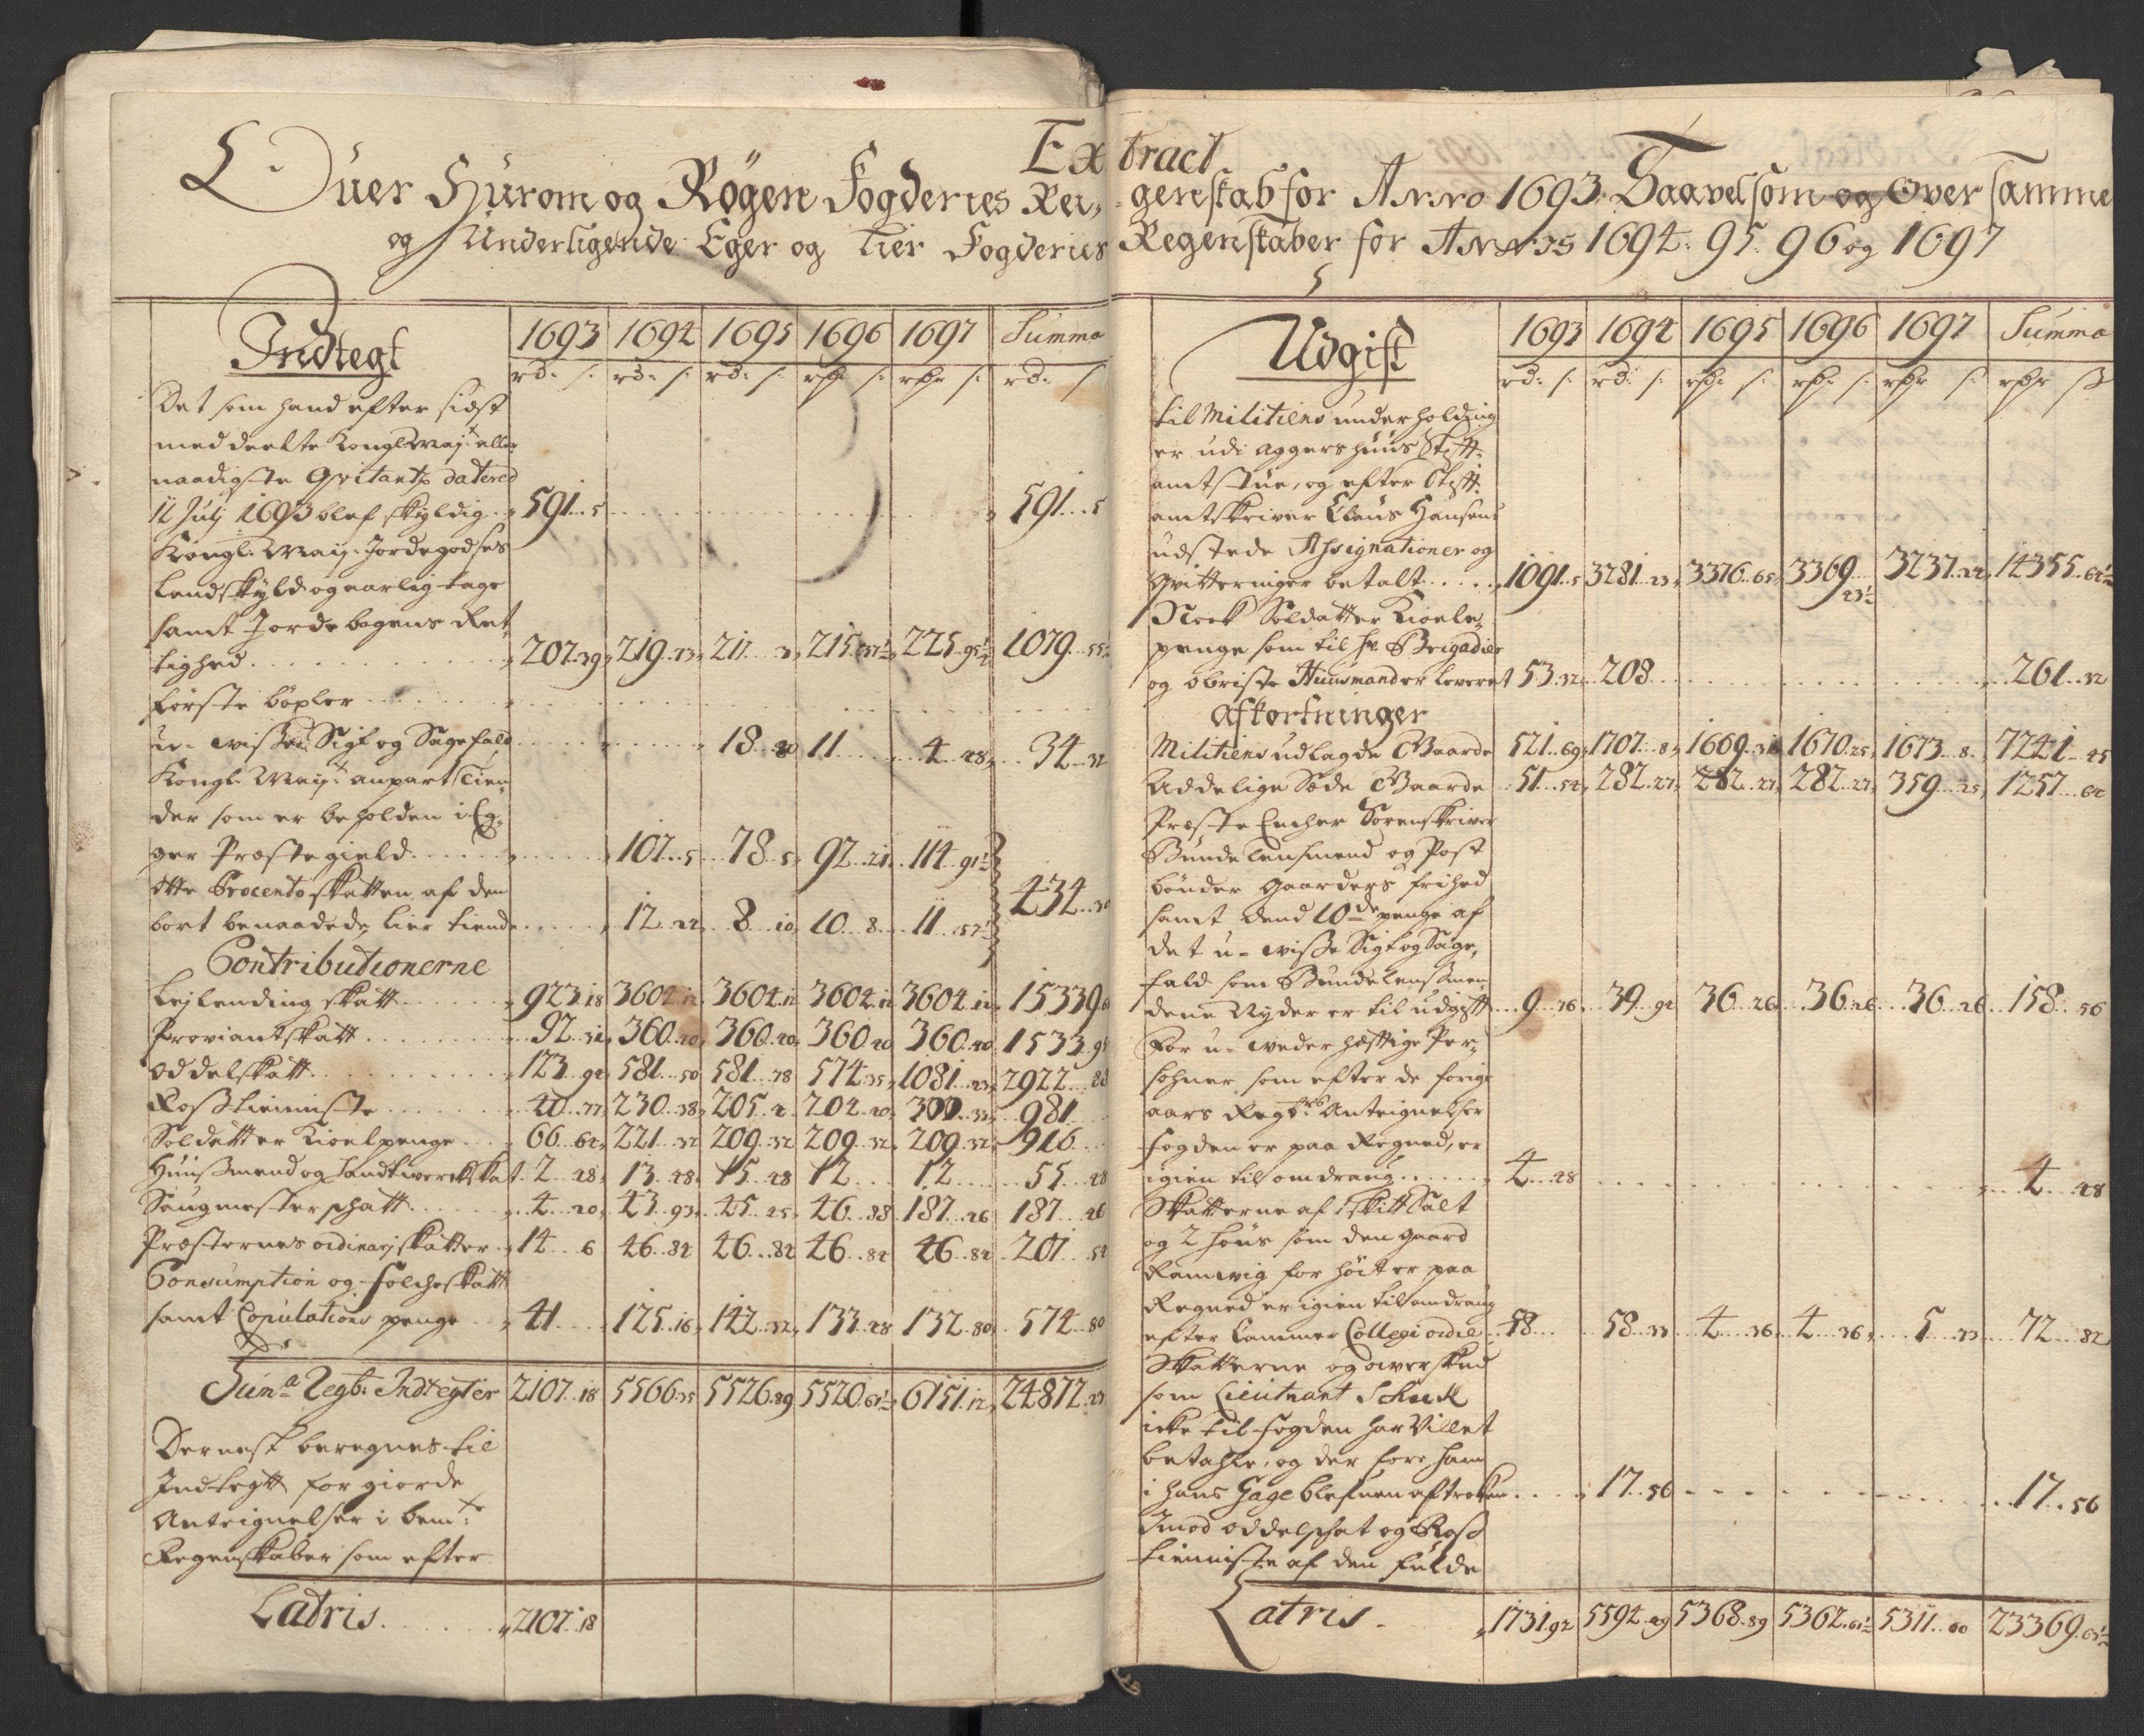 Extract
Ofuer Hurom og Røgen Fogderies Rei-
genskab for Anno 1693. Saavelsom og over samme
og Underligende Eger og Lier Fogderies
Regenskaber for Annos 1694. 95. 96 og 1697
Indtegt 1693 1694 1695 1696 1697 Summa
rd: s: rd: s: rd: s: s: s: rd: s
Det som hand efter sidst
meddeelte Kongl May:t aller
naadigste Qvitantz datered
11 July 1693 blef skyldig 591..5 591..5
Kongl: May: Jordegodses
Landskyld og aarlig tage
samt Jordebogens Ret
tighed 207.39 219.23 217..3 215.37½ 225.95½ 1079..55½
Første böxler
u-wisse Sigt og Sagefald 18..80 11 4..48 34..32
Kongl. May:t anpart Tien
der som er beholden i Eg-
ger Præstegield 107..5 78..5 92..21 114..91½
Otte Procento skatten af den
bort benaadede Lier tiende 12..22 8..10 10..8 11..57½ 434..30
Contributionerne
Lejlending skatt 923.18 3604.12 3604.12 3604.12 3604.12 15339
Proviantskatt 92..31 360..40 360..40 360..40 360..40 1533
Oddelskatt 123..92 581..50 581..78 574.35 1081..23 2922..88
Rosstienniste 40..77 230..38 205..2 204..20 300..33 981
Soldatter Kioelpenge 66..64 221..32 209..32 209..32 209..32 916
Huusmend og handtwerckskat 2..48 13..48 15..48 12 12 55..48
Saugmesterschatt 4..20 43..93 45..25 46..88 187..26 187..26
Præsternes ordinarj skatter 14..6 46..82 46..82 46..82 46..82 201..54
Consumption og Folcheskatt
samt Copulations penge 41 125..16 142..32 133..48 132..80 574..80
Sum:a Regb: Indtegter 2107.18 5566.35 5526.89 5520.61½ 6151.12 24872.23
Dernest beregnes til
Indtegt for giorde
Anteignelser i bem:te
Regenskaber som efter
Latris 2107.18
Udgift 1693 1694 1695 1696 1697 Summa
rd: s: rd: s: s: s: s: s
til Militiens underholding
er udi Aggershuus Stift-
amtstue, og efter Stift
amtskriver Claus Hansens
udstede Assignationer og
Qvitteringer betalt 1091..5 3281..23 3376..65 3369..23½ 3237..22 14355..
Noch Soldatter Kioele-
penge som til hr Brigadier
og obriste Huusmand er leveret 53.32 208 261..32
Afkortninger
Militiens udlagde Gaarde 521..69 1707..8 1669.31 1670.25 1673..8 7241..45
Addelige Sæde Gaarde 51..54 282..27 282..27 282..27 359..25 1257..64
Præste Encher Sorenskriver
Bunde Lensmend og Post
bönder gaarders frihed
samt dend 10de penge af
det u-wisse Sigt og Sage,
fald som Bundelensmen
dene Nyder er til udgift 9..76 39..92 36..26 36..26 36..26 158..56
For u-wederhæftige Per-
sohner som efter de forige
aars Regb:rs Anteignelser
fogden er paa Regned, er
igien til omdraug 4..48 4..48
Skatterne af 1 skitt Salt
og 2 hous som den gaard
Ramwig for höit er paa
Regned er igien til omdraug
efter Cammer Collegi ordre 58 58..33 4..36 4..36 5..33 72..82
Skatterne og overskud
som Lieutnant Schuck
icke til fogden har Villet
betahle, og der fore ham
i hans Gage blefuen aftrocken 17..56 17..56
Imod oddelschat og Ross
tienniste af den fulde
Latris 1731.92 5594.49 5368.89 5362.61½ 5311..60 23369.65½